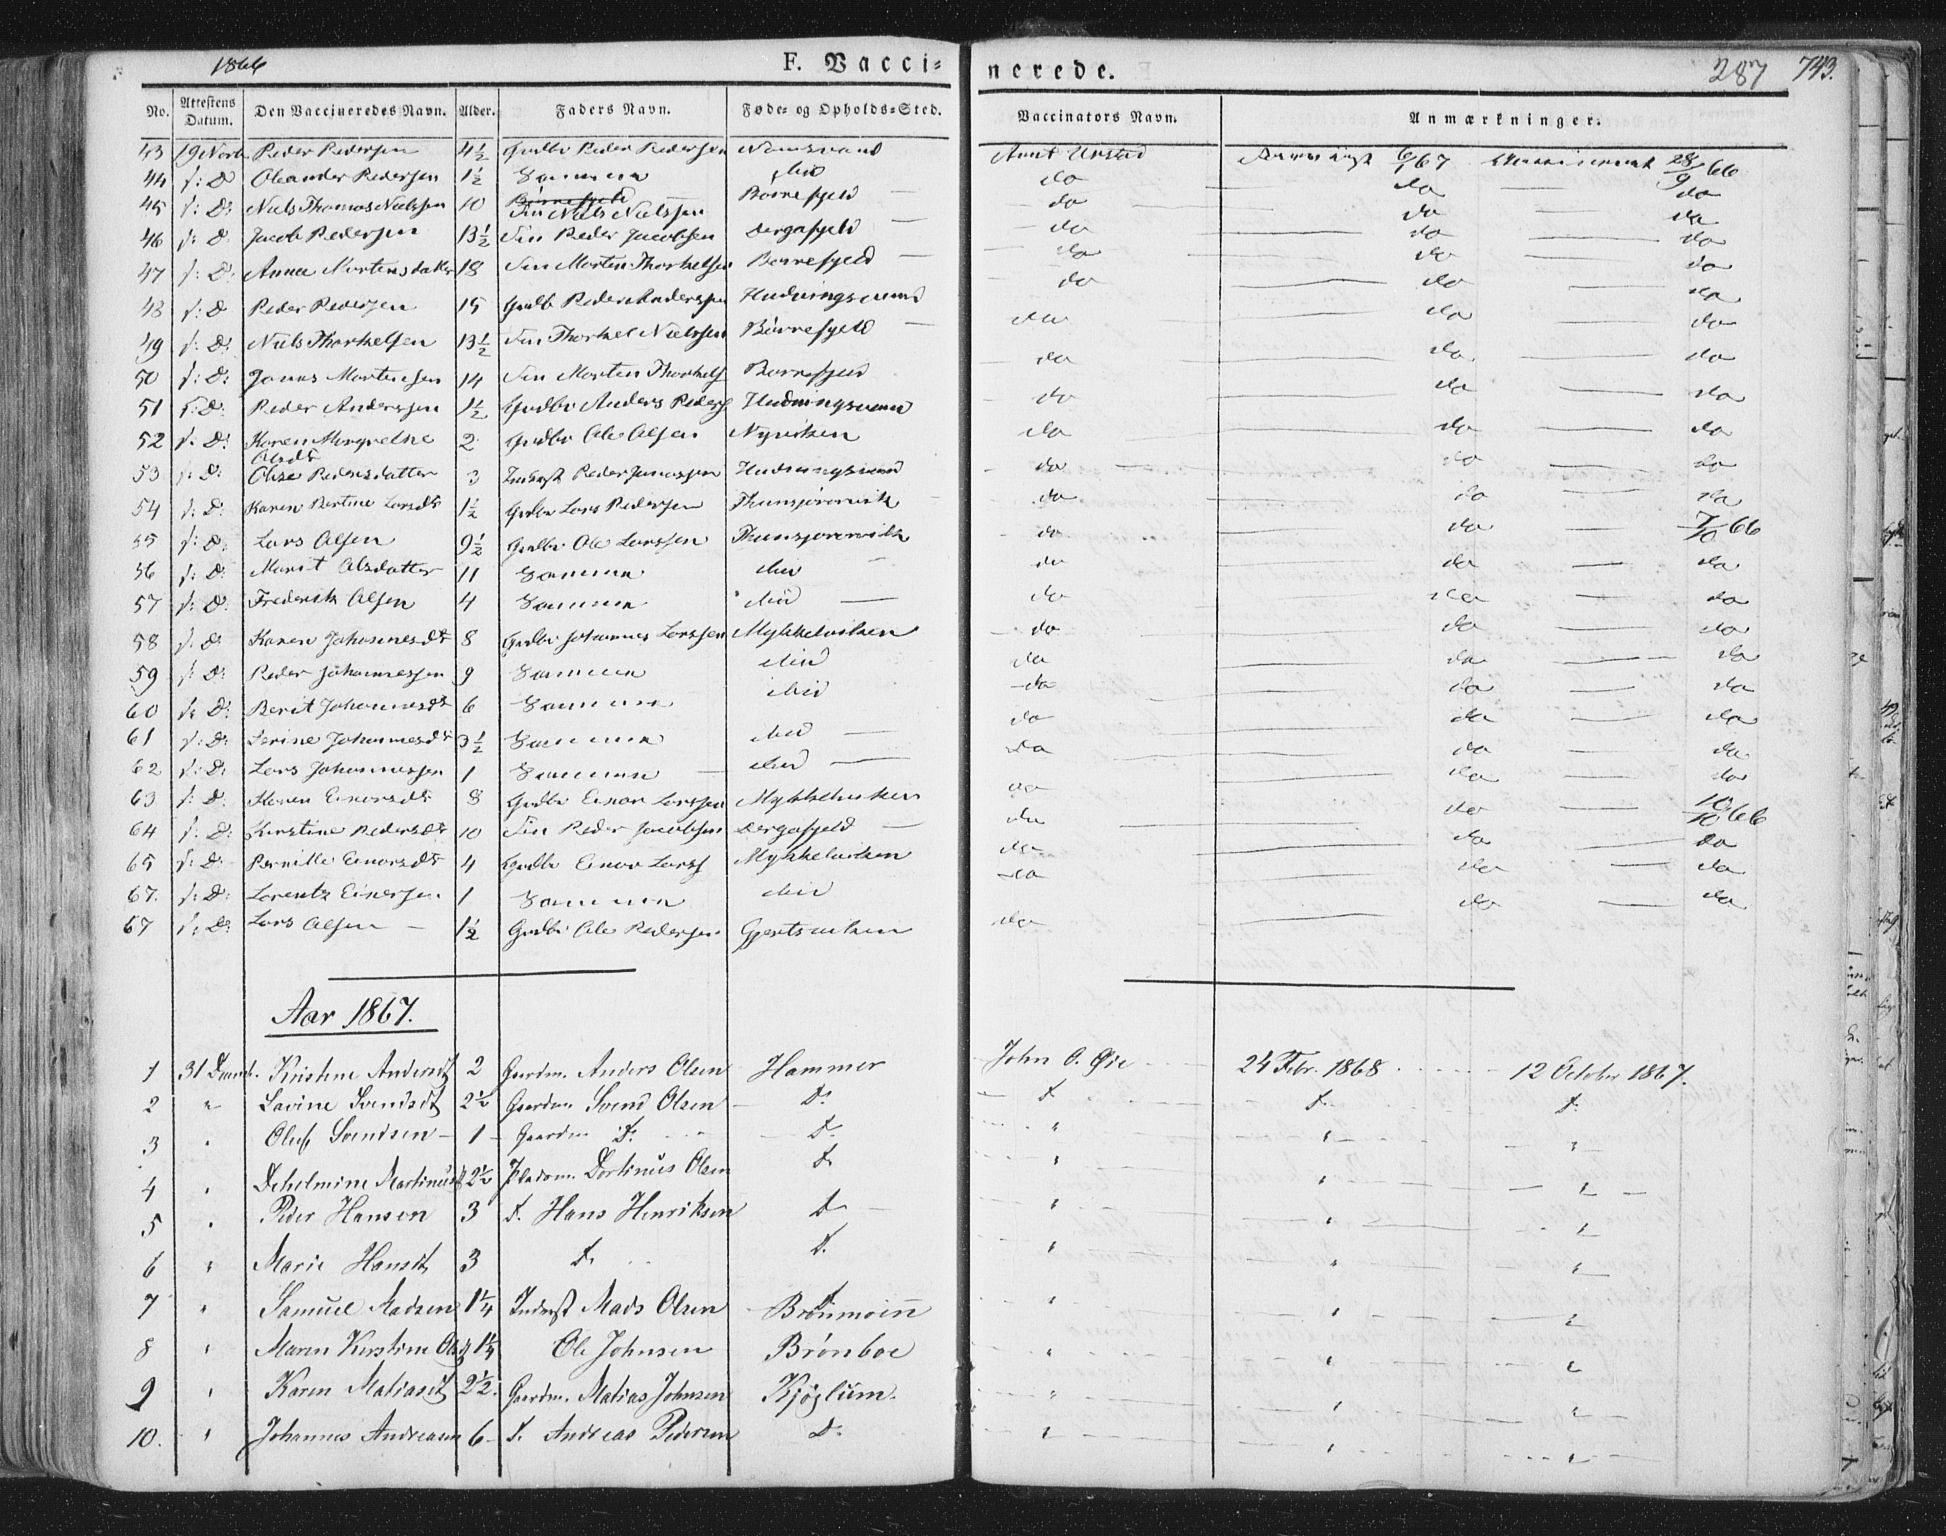 1866 F. Vacci= nerede. 287 743.
No. Attestens Datum. Den Vaccineredes Navn. Alder. Faders Navn. Føde= og Opholds=Sted. Vaccinators Navn. Anmærkninger.
43 19 Novb Peder Pedersen 4½ Gudbr Peder Pedersen Namsvand Arnt Urstad 6/1 67 28/9 66
44 s: D Oleander Pedersen 1½ Samme do do do
45 s: D: Niels Thomas Nielsen 10 Finn Niels Nielssen Børrefjeld — do do do
46 s: D Jacob Pedersen 13½ Fin Peder Jacobsen Dergafjeld — do do do
47 s: D: Anne Mortensdatter 18 Fin Morten Thorkelsen Børrefjeld — do do do
48 s: D Peder Pedersen 15 Gudb Peder Andersen Hudningsvand do do do
49 s: D: Niels Thorkelsen 13½ Fin Thorkel Nielssen Børrefjeld — do do do
50 s: D: Jonas Mortensen 14 Fin Morten Thorkels Børrefjeld do do do
51 s: D: Peder Anderssen 1½ Gudbr Anders Peders Hudningsvand do do do
52 s: D: Karen Margrethe Olsdt 2 Gudbr Ole Olsen Nyviken do do do
53 s: D: Olise Pedersdatter 3 Inderst Peder Jonassen Hudningsvand do do do
54 s: D: Karen Bertine Larsdt 1½ Gudbr Lars Pedersen Thunsjørvik do do do
55 s: D: Lars Olsen 9½ Gudbr Ole Larssen Thunsjørvik do do 7/10 66
56 s: D: Marit Olsdatter 11 Samme do do do
57 s: D: Frederik Olsen 4 Samme do do do
58 s: D Karen Johannesdt 8 Gudbr Johannes Larssen Mykkelviken do do do
59 s: D: Peder Johannessen 9 Samme do do do
60 s: D: Berit Johannesdt 6 Samme do do do
61 s: D: Serine Johannesdt 3½ Samme do do do
62 s: D: Lars Johannessen 1 Samme do do do
63 s: D: Karen Einarsdt 8 Gudbr Einar Larssen Mykkelviken do do do
64 s: D: Kirstine Pedersdt 10 Fin Peder Jacobsen Dergafjeld — do do 10/10 66
65 s: D: Pernille Einarsdt 4 Gudbr Einar Larss Mykkelviken do do do
67. s: D: Lorentz Einersen 1 Samme do do do
67 s: D: Lars Olsen — 1½ Gudbr Ole Pedersen Gjertsviken do do do
Aar 1867.
1 31 Decemb. Kristine Andersdt 2 Gaardm. Anders Olsen Hammer John O. Øie 24 Febr. 1868 12 October 1867.
2 " Lavine Svendsdt 2½ Gaardm Svend Olsen D: D D D:
3 " Oluf Svendsen 1 Gaardm D: D: " " "
4 " Dehelmine Martinusdt 2½ Pladsm. Dortinus Olsen D " " "
5 " Peder Hansen 3 D. Hans Henriksen D " " "
6 " Marie Hansdt 3 D. D. " " "
7 " Samuel Madsen 1¼ Inderst Mads Olsen Brønmoinn " " "
8 " Maren Kirstine Olsdt 1¼ Ole Johnsen Brønboe " " "
9 " Karen Matiasdt 2½. Gaardm. Matias Johnsen Kjøglum. " " "
10. " Johannes Andreasen 6 D. Andreas Pedersen D: " " "